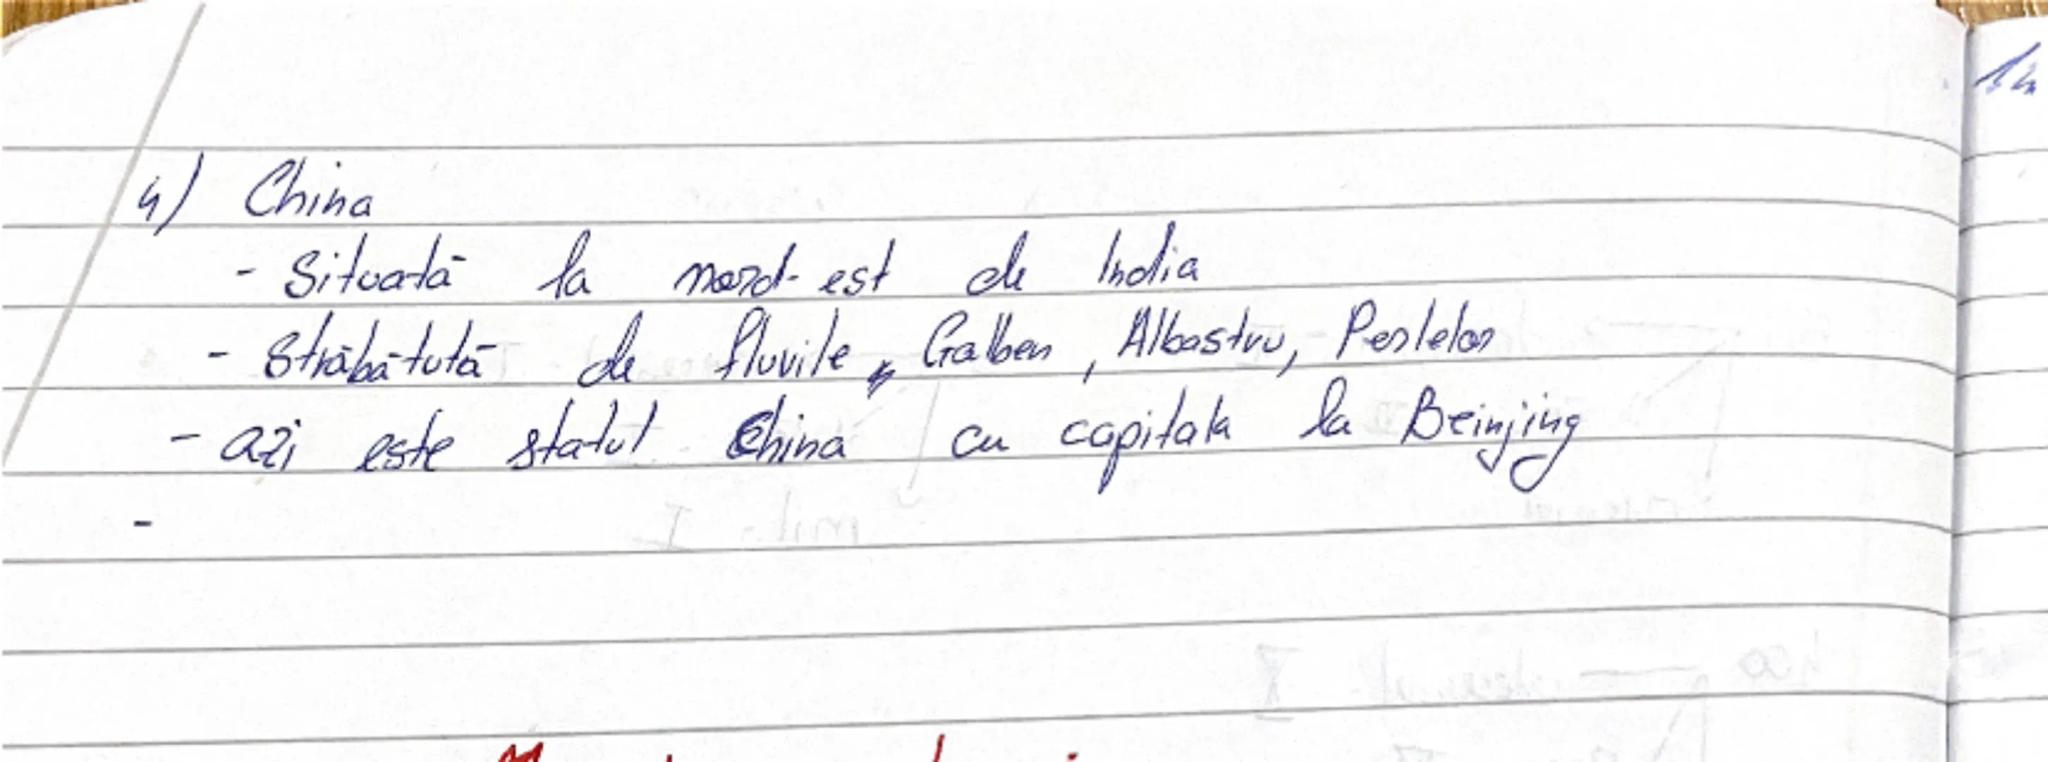 4) China
- Situată la nord-est de India
- Străbătută de fluvile Galben, Albastru, Perlelor
- azi este statul China cu capitala la Beinjing
-